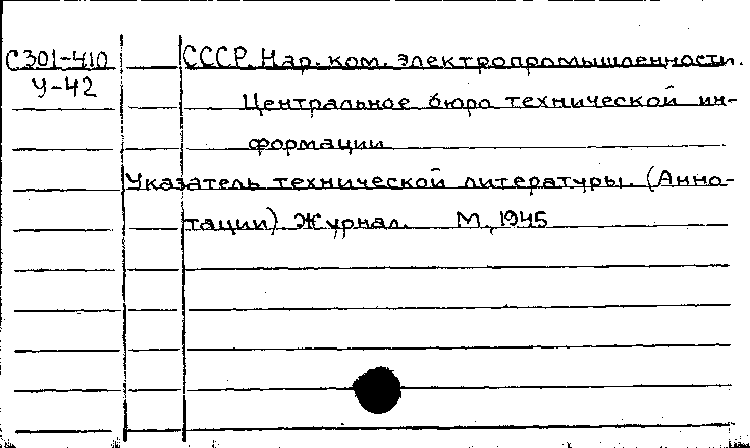 С301-410 СССР. Нар. ком. электропромышленности.
У-42
Центральное бюро технической ин-
формации
Указатель технической литературы. (Анно-
тации). Журнал. М., 1945